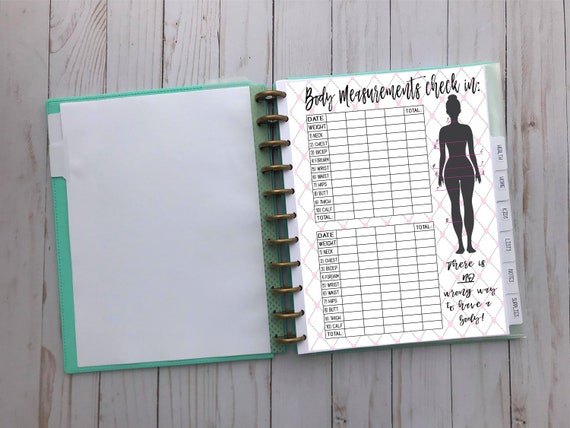 Body Measurements check in:
DATE TOTAL
WEIGHT
1) NECK
2) CHEST
3) BICEP
4) FOREARM
5) WRIST
6) WAIST
7) HIPS
8) BUTT
9) THIGH
10) CALF
TOTAL
DATE TOTAL
WEIGHT
1) NECK
2) CHEST
3) BICEP
4) FOREARM
5) WRIST
6) WAIST
7) HIPS
8) BUTT
9) THIGH
10) CALF
TOTAL
There is
NO
wrong way
to have a
body!
HEALTH
HOME
KIDS
LISTS
NOTES